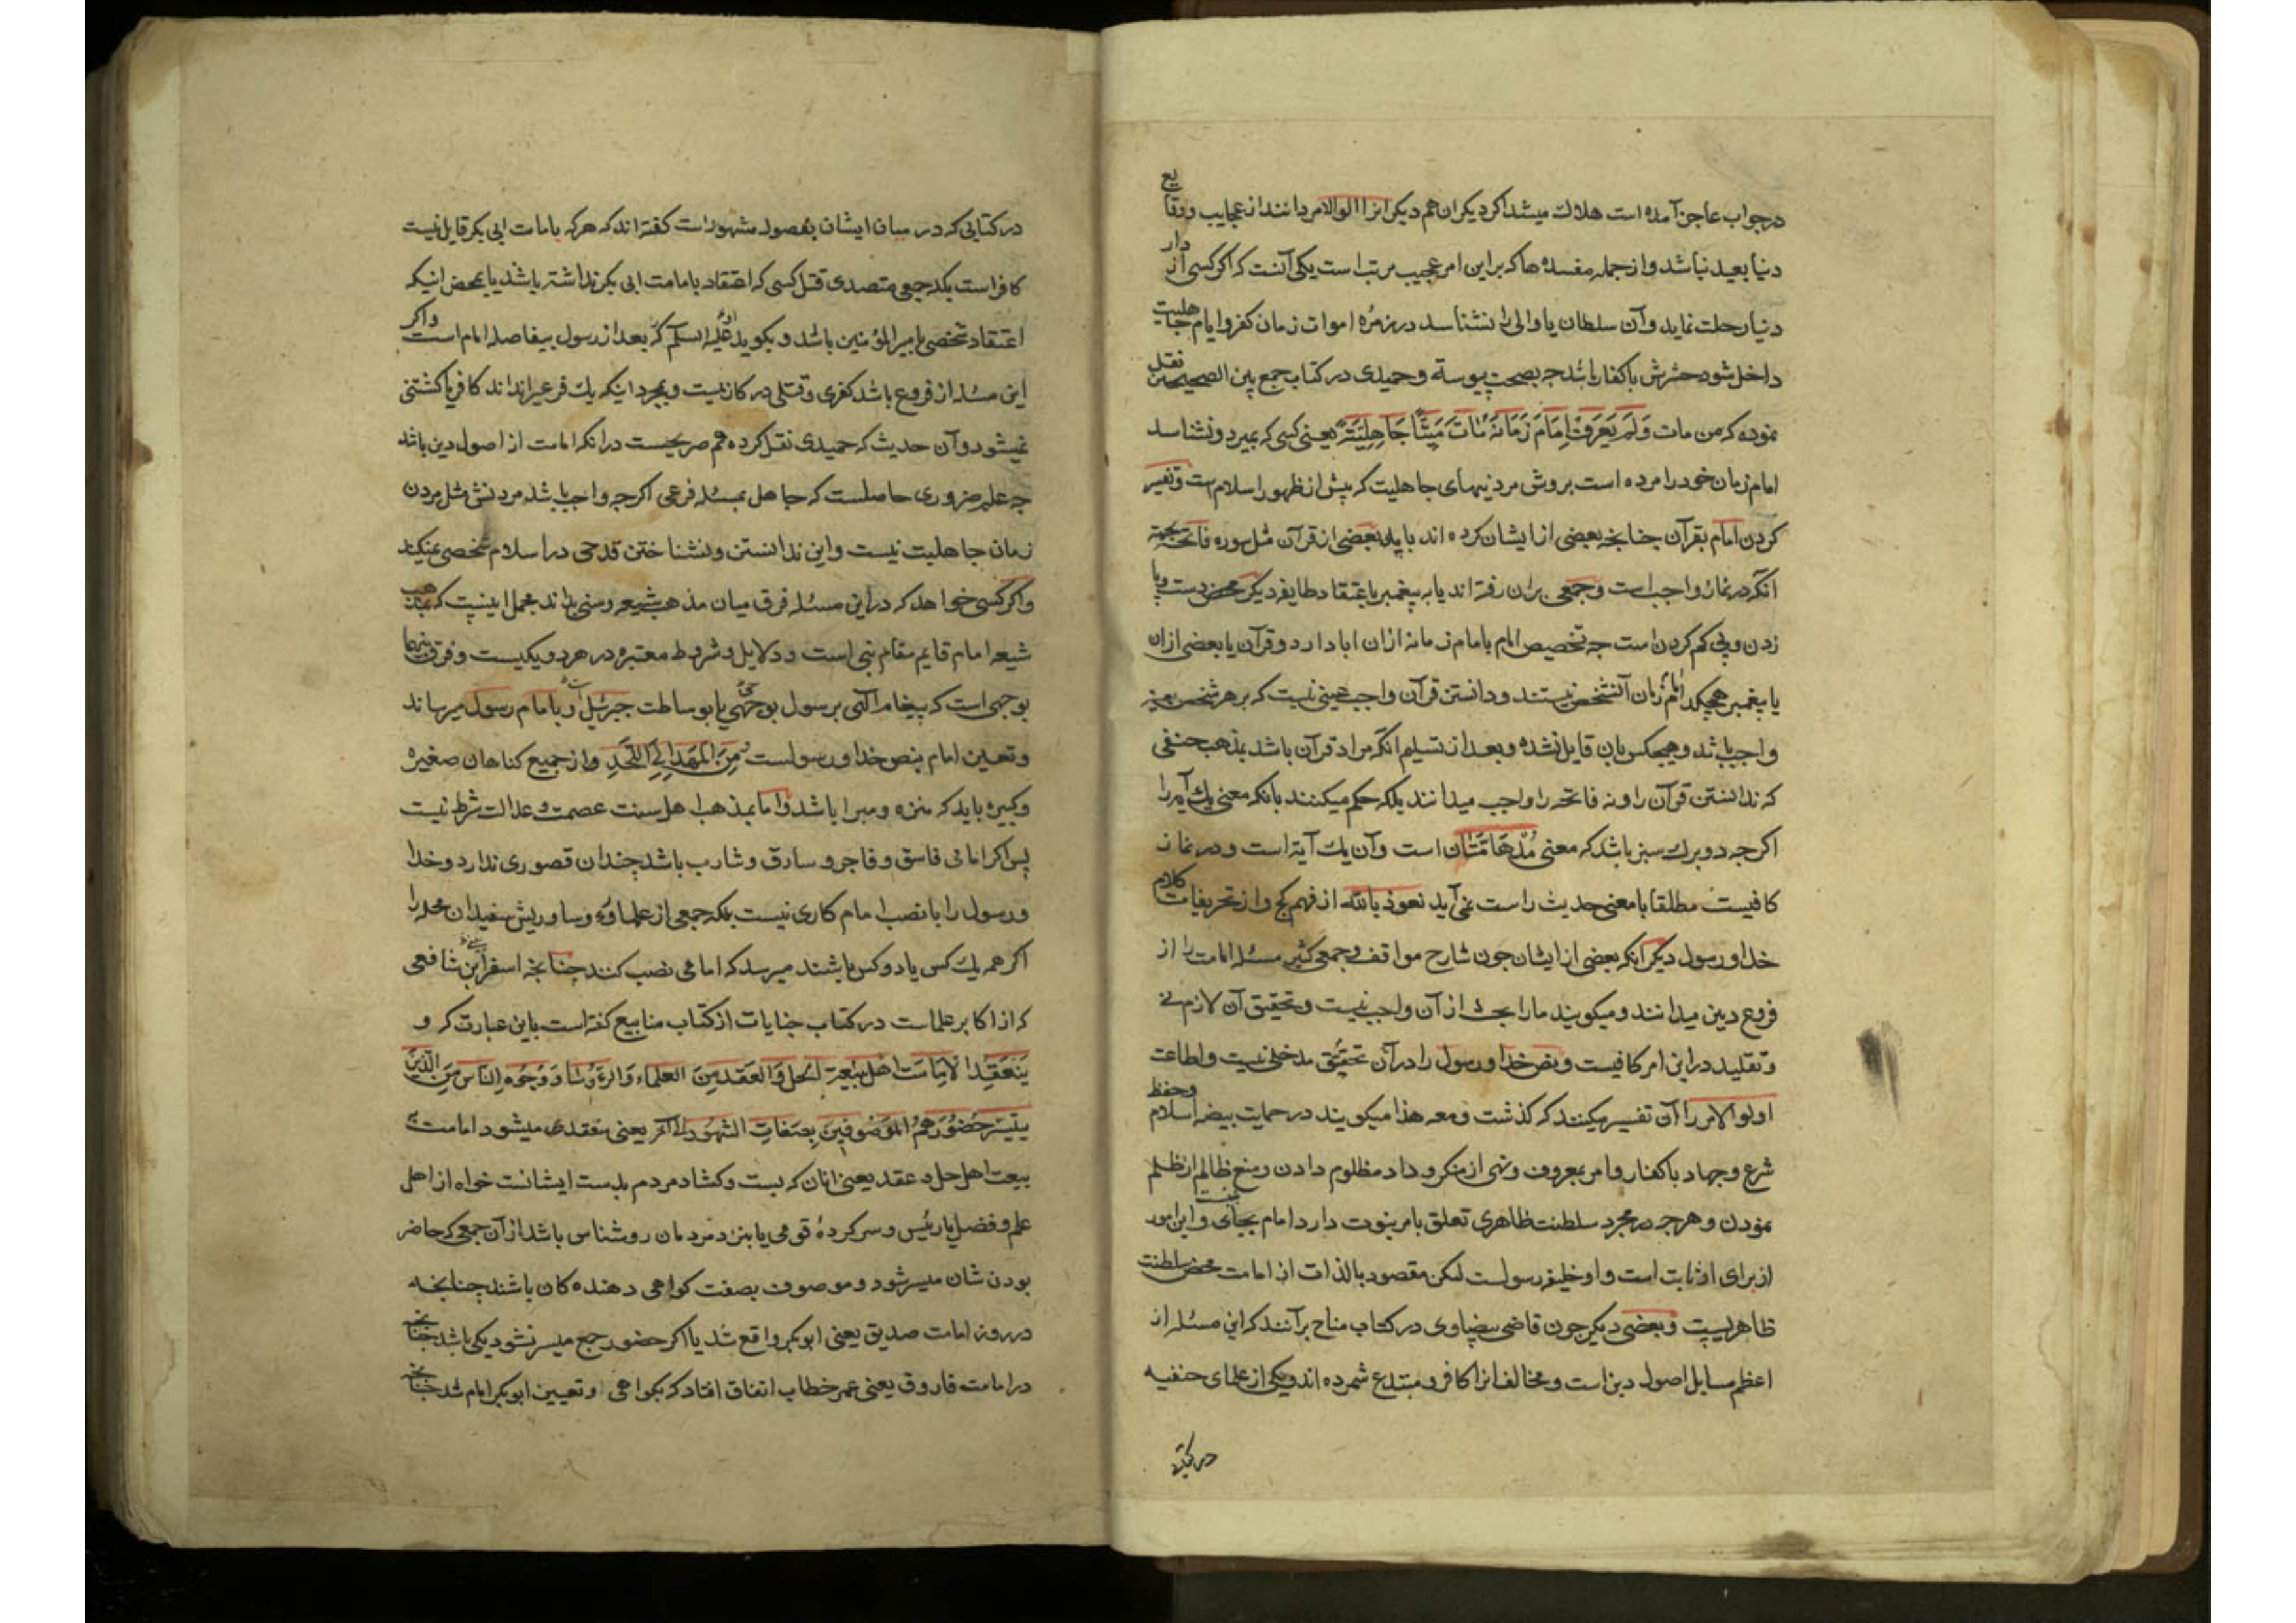 در جواب عاجز آمده است هلاك میشد اكر دیكران هم دیكر انرا اولوالامر دانند از عجایب و وقایع
دنیا بعید نباشد و از جمله مفسده ها كه بر این امر عجیب مرتب است یكی آنست كه اكر كسی از دار
دنیا رحلت نماید و آن سلطان یا والی را نشناسد در زمره اموات زمان كفر و ایام جاهلیت
داخل شود حشرش با كفار باشد چه بصحت پیوسته و حمیدی در كتاب جمع بین الصحیحین نقل
نموده كه من مات وَلَم یَعرَفْ اِمَامَ زَمَانَهُ مَاتَ مَیتًا جَاهِلیَتَه یعنی كسی كه بمیرد و نشناسد
امام زمان خود را مرده است بروش مردنیهای جاهلیت كه پیش از ظهور اسلام است و تفسیر
كردن امام بقرآن چنانچه بعضی از ایشان كرده اند یا بعضی از قرآن مثل سوره فاتحه بجهته
آنكه در نماز واجب است و جمعی بران رفته اند یا به پیغمبر باعتقاد طایفه دیكر محض دست و پا
زدن و پی كم كردن است چه تخصیص امام بامام زمانه ازان ابا دارد و قرآن یا بعضی ازان
یا پیغمبر هیچكدام امام زمان آنشخص نیستند و دانستن قرآن واجب عینی نیست كه بر هر شخص بعینه
واجب باشد و هیچكس بان قایل نشده و بعد از تسلیم آنكه مراد قرآن باشد بمذهب حنفی
كه ندانستن قرآن را و نه فاتحه را واجب میدانند بلكه حكم میكنند بانكه معنی یك آیه را
اكر چه دو برك سبز باشد كه معنی مُدْهَامَّتَان است و آن یك آیة است و در نماز
كافیست مطلقا با معنی حدیث راست نمی آید نعوذ بالله از فهم كج و از تحریفات كلام
خدا و رسول دیكر آنكه بعضی از ایشان چون شارح مواقف و جمعی كثیر مسئله امامت را از
فروع دین میدانند و میكویند ما را بحث از آن واجب نیست و تحقیق آن لازم نی
و تقلید در این امر كافیست و نص خدا و رسول را در آن تحقیق مدخلی نیست و اطاعت
اولوا الامر را آن تفسیر میكنند كه كذشت و معه هذا میكویند در حمایت بیضه اسلام و حفظ
شرع و جهاد با كفار و امر بمعروف و نهی از منكر و داد مظلوم دادن و منع ظالم از ظلم
نمودن و هر چه در مجرد سلطنت ظاهری تعلق بامر نبوت دارد امام بجای نبیست و این امور
از برای او ثابت است و او خلیفه رسولست لكن مقصود بالذات از امامت محض سلطنت
ظاهریست و بعضی دیكر چون قاضی بیضاوی در كتاب مناج برآنند كه این مسئله از
اعظم مسایل اصول دین است و مخالف انرا كافر و مبتدع شمرده اند و یكی از علمای حنفیه
در كتابی
در كتابی كه در میان ایشان بفصول مشهور است كفته اند كه هر كه بامامت ابی بكر قایل نیست
كافر است بلكه جمعی متصدی قتل كسی كه اعتقاد بامامت ابی بكر نداشته باشد یا بمحض اینكه
اعتقاد شخصی بامیر المؤمنین باشد و بكوید او علیه السلم كه بعد از رسول بیفاصله امام است و اكر
این مسئله از فروع باشد كفری و قتلی در كار نیست و بمجرد اینكه یك فرعیرا نداند كافر یا كشتنی
نمیشود و آن حدیث كه حمیدی نقل كرده هم صریحست در آنكه امامت از اصول دین باشد
چه علم ضروری حاصلست كه جاهل بمسئله فرعی اكر چه واجب باشد مردنش مثل مردن
زمان جاهلیت نیست و این ندانستن و نشناختن قدحی در اسلام شخصی نمیكند
و اكر كسی خواهد كه در این مسئله فرق میان مذهب شیعه و سنی بداند مجمل اینست كه بمذهب
شیعه امام قایم مقام نبی است و دلایل و شروط معتبره در هر دو یكیست و فرق بینهما
بوجهی است كه پیغام الهی برسول بوحی یا بوساطت جبرئیل است و بامام رسول میرساند
و تعیین امام بنص خدا و رسولست مِنَ المَهدِ اِلَی اللَّحَدِ و از جمیع كناهان صغیره
و كبیره باید كه منزه و مبرا باشد و اما بمذهب اهل سنت عصمت و عدالت شرط نیست
پس اكر امامی فاسق و فاجر و سارق و شارب باشد چندان قصوری ندارد و خدا
و رسول را با نصب امام كاری نیست بلكه جمعی از علما و رؤسا و ریش سفیدان محله را
اكر هم یك كس یا دو كس باشند میرسد كه امامی نصب كنند چنانچه اسفراینی شافعی
كه از اكابر علماست در كتاب جنایات از كتاب ینابیع كفته است باین عبارت كه و
یَنعَقِدُ الاِمَامَت اهل بِبَیعِة الحل وَالعَقدِ مِنَ العلماء وَالرؤسَاءَ وَ وُجُوهِ النّاس مِنَ الّذینَ
یتیسّر حُضُورَهُمُ الموَصُوفینَ بِصفَاتِ الشهُود الی آخر یعنی منعقد میشود امامت به
بیعت اهل حل و عقد یعنی انان كه بست و كشاد مردم بدست ایشانست خواه از اهل
علم و فضل یا رئیس و سركرده قومی یا بنزد مردمان روشناس باشد از آن جمعی كه حاضر
بودن شان میسر شود و موصوف بصفت كواهی دهنده كان باشند چنانچه
در روز امامت صدیق یعنی ابوبكر واقع شد یا اكر حضور جمع میسر نشود یكی باشد چنانچه
در امامت فاروق یعنی عمر خطاب اتفاق افتاد كه بكواهی و تعیین ابوبكر امام شد چنانچه